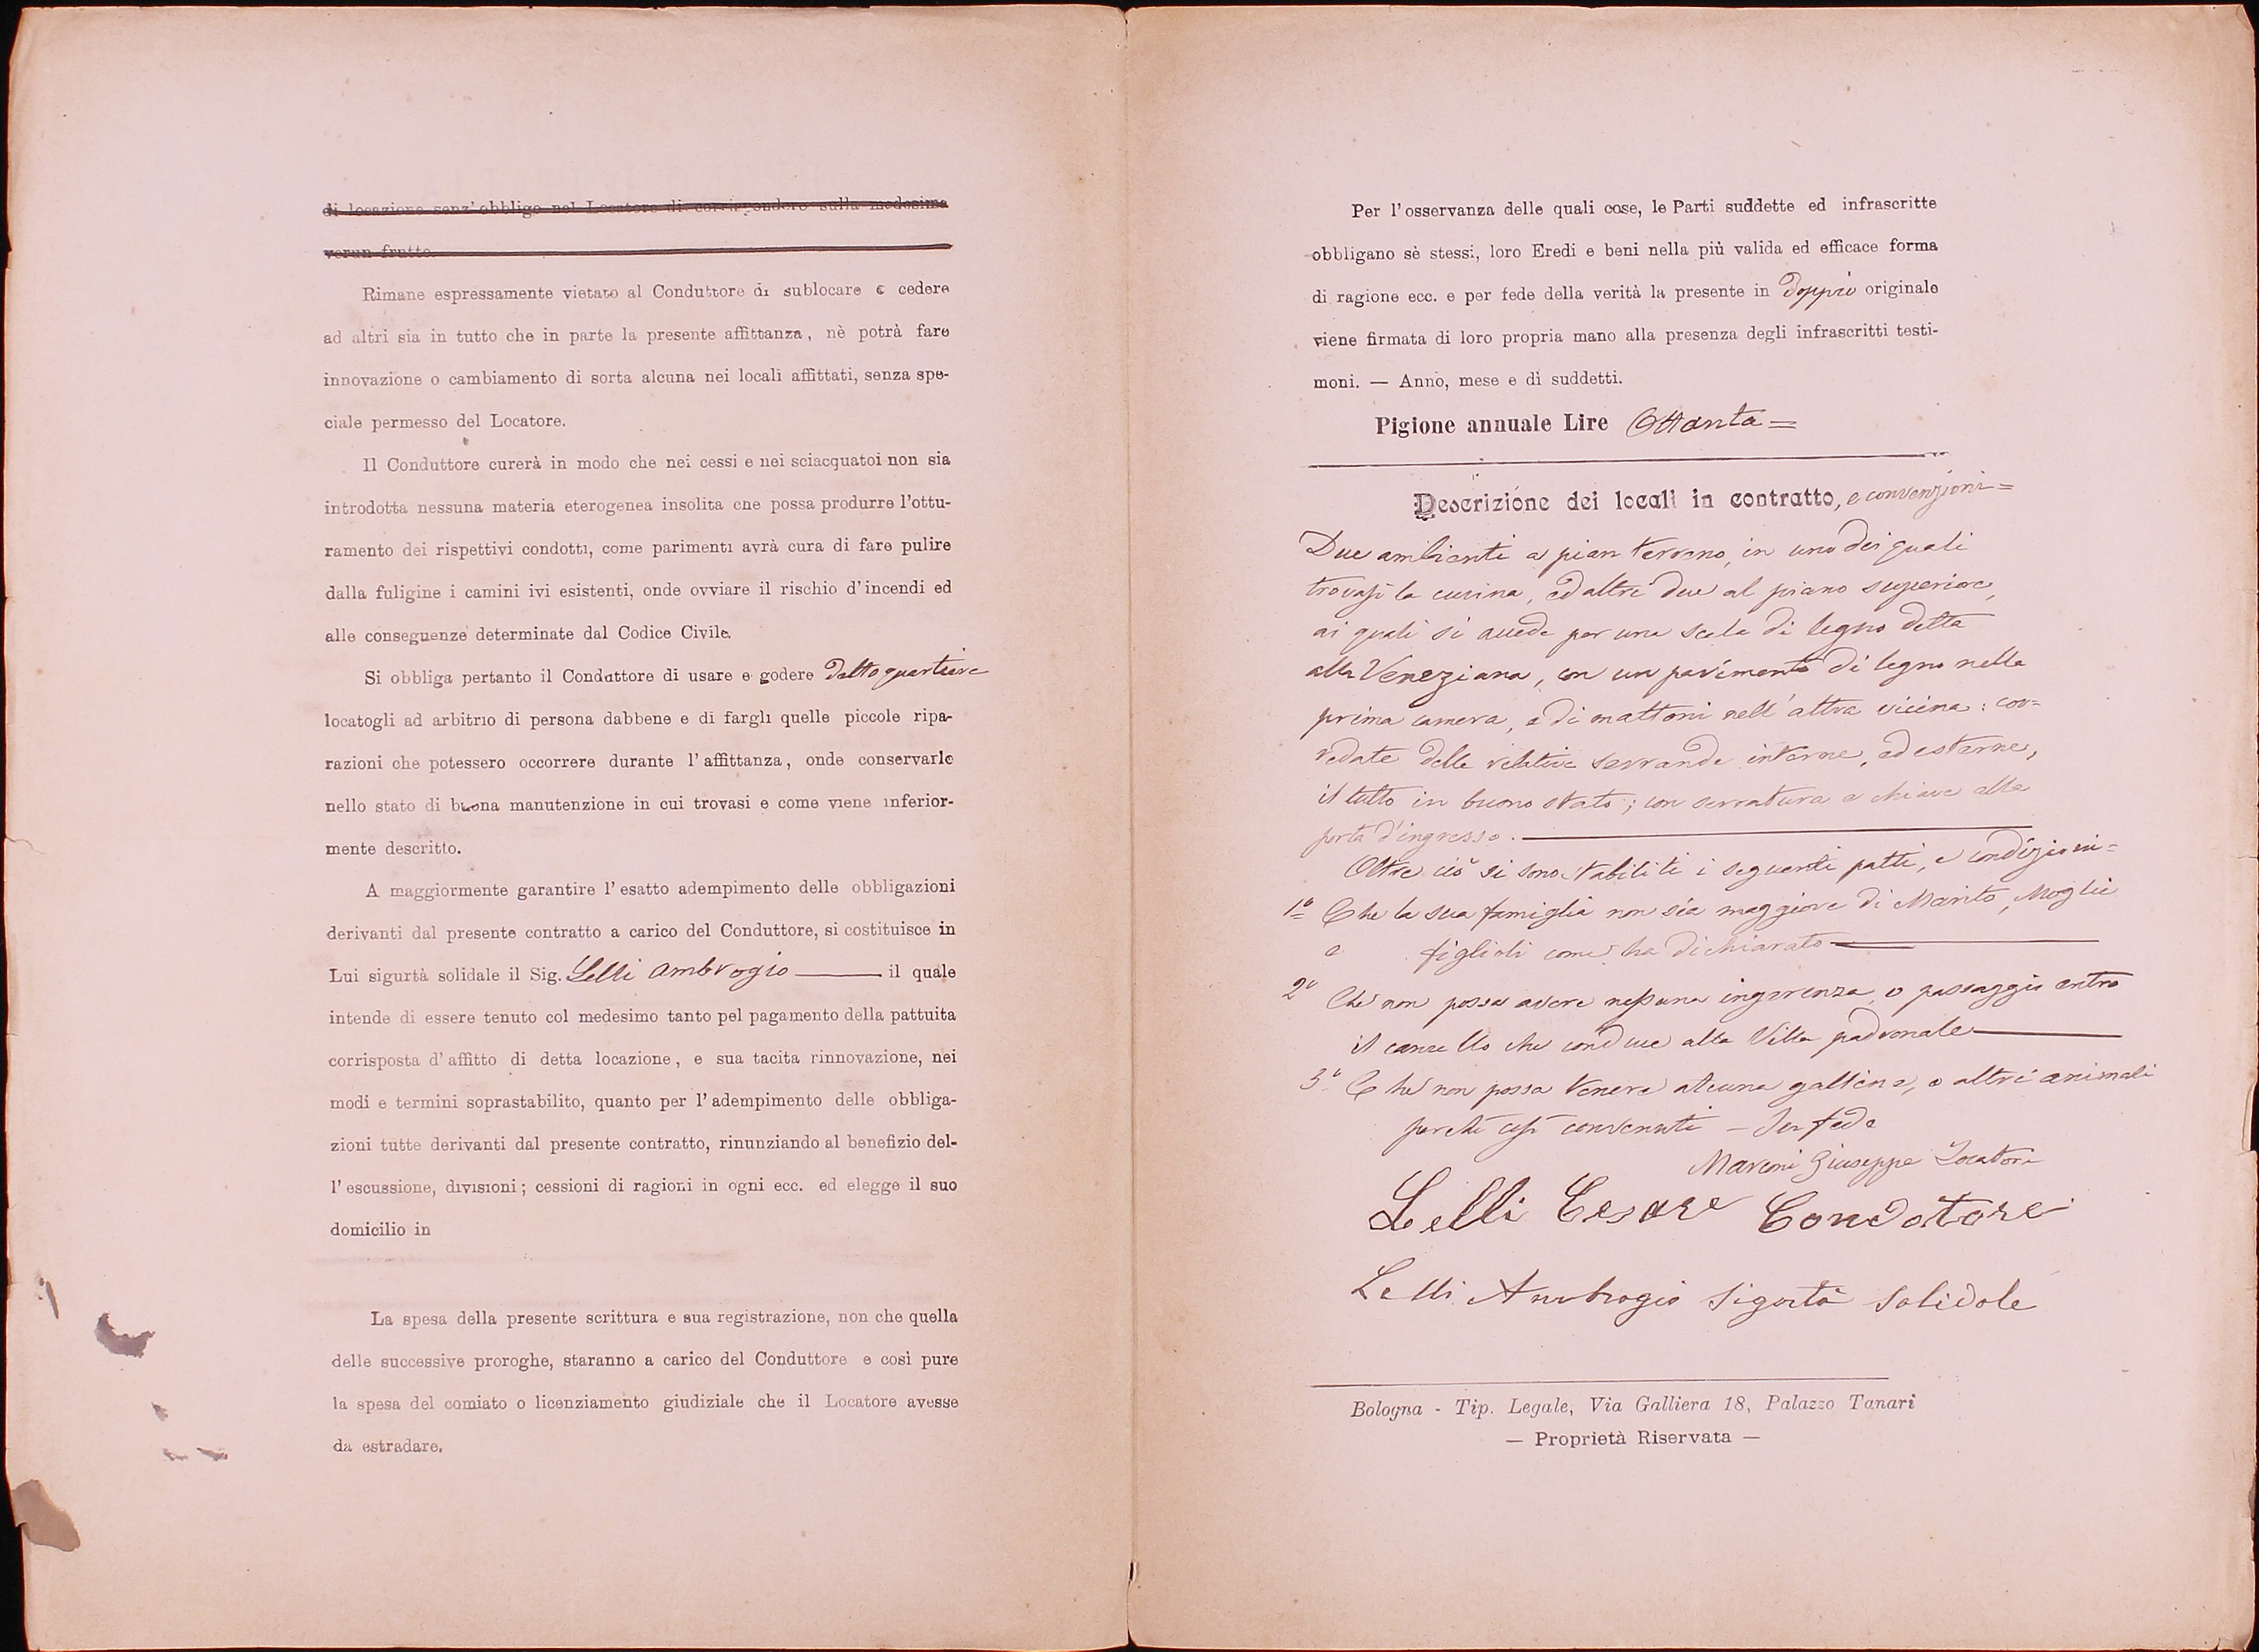 di locazione senz'obbligo nel Locatore di corrispondere sulla medesima
verun frutto.
Rimane espressamente vietato al Conduttore di sublocare e cedere
ad altri sia in tutto che in parte la presente affittanza, nè potrà fare
innovazione o cambiamento di sorta alcuna nei locali affittati, senza spe-
ciale permesso del Locatore.
Il Conduttore curerà in modo che nei cessi e nei sciacquatoi non sia
introdotta nessuna materia eterogenea insolita che possa produrre l'ottu-
ramento dei rispettivi condotti, come parimenti avrà cura di fare pulire
dalla fuligine i camini ivi esistenti, onde ovviare il rischio d'incendi ed
alle conseguenze determinate dal Codice Civile.
Si obbliga pertanto il Conduttore di usare e godere detto quartiere
locatogli ad arbitrio di persona dabbene e di fargli quelle piccole ripa-
razioni che potessero occorrere durante l'affittanza, onde conservarlo
nello stato di buona manutenzione in cui trovasi e come viene inferior-
mente descritto.
A maggiormente garantire l'esatto adempimento delle obbligazioni
derivanti dal presente contratto a carico del Conduttore, si costituisce in
Lui sigurtà solidale il Sig. Lelli Ambrogio il quale
intende di essere tenuto col medesimo tanto pel pagamento della pattuita
corrisposta d'affitto di detta locazione, e sua tacita rinnovazione, nei
modi e termini soprastabilito, quanto per l'adempimento delle obbliga-
zioni tutte derivanti dal presente contratto, rinunziando al benefizio del-
l'escussione, divisioni; cessioni di ragioni in ogni ecc. ed elegge il suo
domicilio in
La spesa della presente scrittura e sua registrazione, non che quella
delle successive proroghe, staranno a carico del Conduttore e così pure
la spesa del comiato o licenziamento giudiziale che il Locatore avesse
da estradare.
Per l'osservanza delle quali cose, le Parti suddette ed infrascritte
obbligano sè stessi, loro Eredi e beni nella più valida ed efficace forma
di ragione ecc. e per fede della verità la presente in doppio originale
viene firmata di loro propria mano alla presenza degli infrascritti testi-
moni. — Anno, mese e dì suddetti.
Pigione annuale Lire Ottanta =
Descrizione dei locali in contratto, e convenzioni =
Due ambienti a pian terreno, in uno dei quali
trovasi la cucina, ed altri due al piano superiore,
ai quali si accede per una scala di legno detta
alla Veneziana, con un pavimento di legno nella
prima camera, e di mattoni nell'altra vicina: cor=
redate delle relative serrande interne, ed esterne,
il tutto in buono stato; con serratura e chiave alla
porta d'ingresso.
Oltre ciò si sono stabiliti i seguenti patti, e condizioni =
1° Che la sua famiglia non sia maggiore di Marito, Moglie
e figlioli come ha dichiarato
2° Che non possa avere nessuna ingerenza, o passaggio entro
il cancello che conduce alla Villa padronale
3° Che non possa tenere alcuna gallina, o altri animali
perchè così convenuti — In fede
Marconi Giuseppe Locatore
Lelli Cesare Condotore
Lelli Ambrogio Sigortà Solidole
Bologna - Tip. Legale, Via Galliera 18, Palazzo Tanari
— Proprietà Riservata —